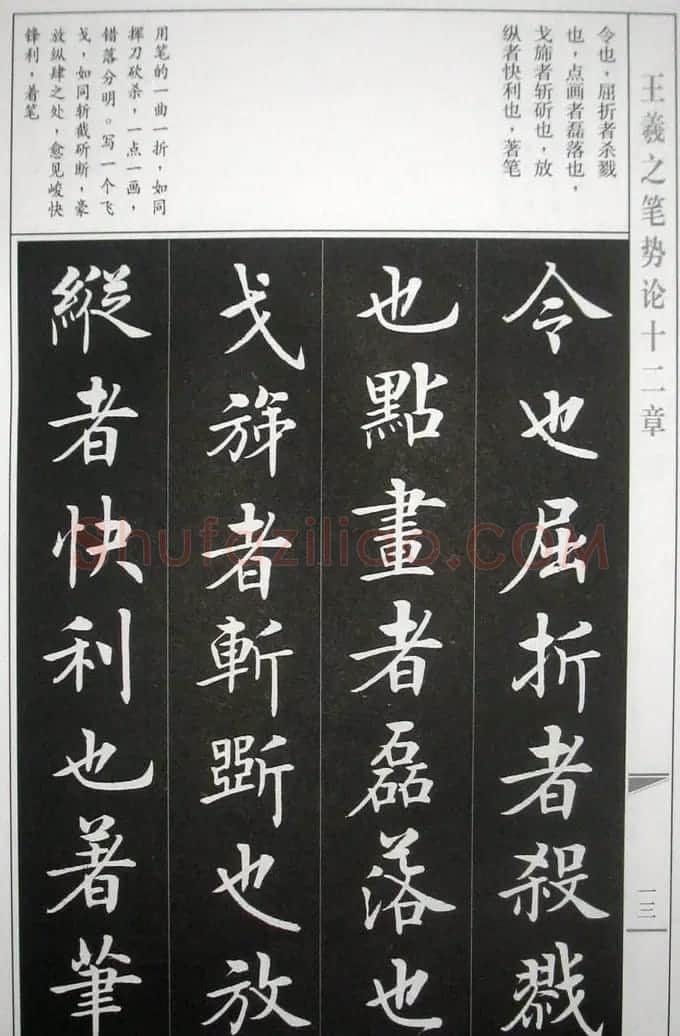 王羲之笔势论十二章
一三
令也，屈折者杀戮
也，点画者磊落也，
戈旆者斩斫也，放
纵者快利也，著笔
用笔的一曲一折，如同
挥刀砍杀，一点一画，
错落分明。写一个飞
戈，如同斩截斫断，豪
放纵肆之处，愈见峻快
锋利，着笔
令也屈折者殺戮
也點畫者磊落也
戈旆者斬斲也放
縱者快利也著筆
Shufaziliao.COM